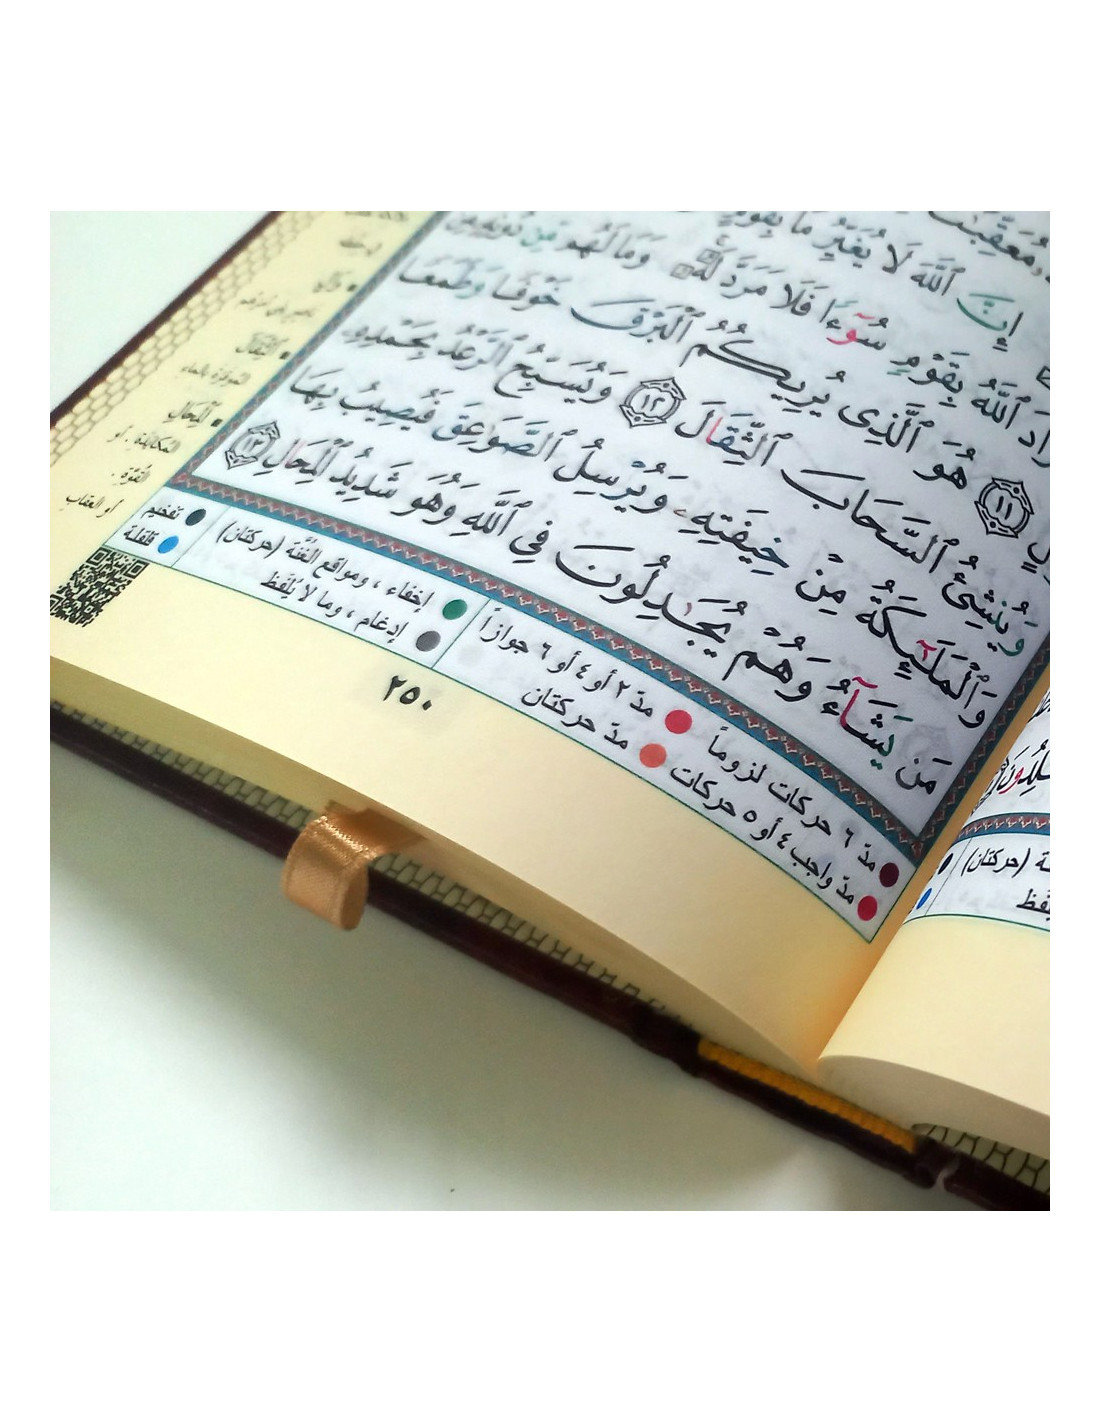 مُعَقِّبَـٰتٌ
إِنَّ ٱللَّهَ لَا يُغَيِّرُ مَا بِقَوْمٍ
ٱللَّهُ بِقَوْمٍ سُوٓءًا فَلَا مَرَدَّ لَهُۥ ۚ وَمَا لَهُم مِّن دُونِهِۦ مِن
١١ هُوَ ٱلَّذِى يُرِيكُمُ ٱلْبَرْقَ خَوْفًا وَطَمَعًا
وَيُنشِئُ ٱلسَّحَابَ ٱلثِّقَالَ ١٢ وَيُسَبِّحُ ٱلرَّعْدُ بِحَمْدِهِۦ
وَٱلْمَلَـٰٓئِكَةُ مِنْ خِيفَتِهِۦ وَيُرْسِلُ ٱلصَّوَٰعِقَ فَيُصِيبُ بِهَا
مَن يَشَآءُ وَهُمْ يُجَـٰدِلُونَ فِى ٱللَّهِ وَهُوَ شَدِيدُ ٱلْمِحَالِ ١٣
■ الثِّقَالَ
الموقرة بالماء
■ المِحَالِ
المكايدة، أو
القوّة.
أو العقاب
● مدّ ٦ حركات لزوماً ● مدّ ٢ أو ٤ أو ٦ جوازاً
● مدّ واجب ٤ أو ٥ حركات ● مدّ حركتان
● إخفاء، ومواقع الغُنَّة (حركتان)
● إدغام، وما لا يُلفَظ
● تفخيم
● قلقلة
٢٥٠
(حركتان)